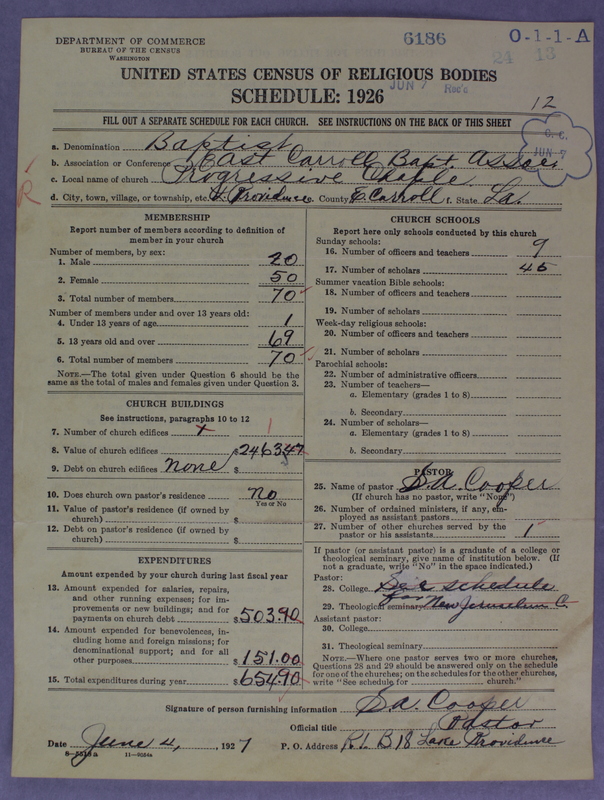 DEPARTMENT OF COMMERCE
BUREAU OF THE CENSUS
WASHINGTON
6186
O-1-1-A
24 13
UNITED STATES CENSUS OF RELIGIOUS BODIES
SCHEDULE: 1926
JUN 7 Rec'd
12
FILL OUT A SEPARATE SCHEDULE FOR EACH CHURCH. SEE INSTRUCTIONS ON THE BACK OF THIS SHEET
C. C.
JUN 7
a. Denomination Baptist
b. Association or Conference East Carroll Bapt. Assoc
c. Local name of church Progressive Chaple
d. City, town, village, or township, etc. L. Providence e. County E. Carroll f. State La.
R
MEMBERSHIP
Report number of members according to definition of
member in your church
Number of members, by sex:
1. Male 20
2. Female 50
3. Total number of members 70
Number of members under and over 13 years old:
4. Under 13 years of age 1
5. 13 years old and over 69
6. Total number of members 70
NOTE.—The total given under Question 6 should be the
same as the total of males and females given under Question 3.
CHURCH BUILDINGS
See instructions, paragraphs 10 to 12
7. Number of church edifices
8. Value of church edifices $
9. Debt on church edifices none $
10. Does church own pastor's residence No
Yes or No
11. Value of pastor's residence (if owned by
church) $
12. Debt on pastor's residence (if owned by
church) $
EXPENDITURES
Amount expended by your church during last fiscal year
13. Amount expended for salaries, repairs,
and other running expenses; for im-
provements or new buildings; and for
payments on church debt $503.90
14. Amount expended for benevolences, in-
cluding home and foreign missions; for
denominational support; and for all
other purposes $151.00
15. Total expenditures during year $654.90
CHURCH SCHOOLS
Report here only schools conducted by this church
Sunday schools:
16. Number of officers and teachers 9
17. Number of scholars 45
Summer vacation Bible schools:
18. Number of officers and teachers
19. Number of scholars
Week-day religious schools:
20. Number of officers and teachers
21. Number of scholars
Parochial schools:
22. Number of administrative officers
23. Number of teachers—
a. Elementary (grades 1 to 8)
b. Secondary
24. Number of scholars—
a. Elementary (grades 1 to 8)
b. Secondary
PASTOR
25. Name of pastor S.A. Cooper
(If church has no pastor, write "None")
26. Number of ordained ministers, if any, em-
ployed as assistant pastors
27. Number of other churches served by the
pastor or his assistants 1
If pastor (or assistant pastor) is a graduate of a college or
theological seminary, give name of institution below. (If
not a graduate, write "No" in the space indicated.)
Pastor:
28. College See schedule
29. Theological seminary for New Jerusalem C.
Assistant pastor:
30. College
31. Theological seminary
NOTE.—Where one pastor serves two or more churches,
Questions 28 and 29 should be answered only on the schedule
for one of the churches; on the schedules for the other churches,
write "See schedule for church."
Signature of person furnishing information S.A. Cooper
Official title Pastor
Date June 4, 1927 P. O. Address R.1. B 18 Lake Providence
8-5513a 11-9054a